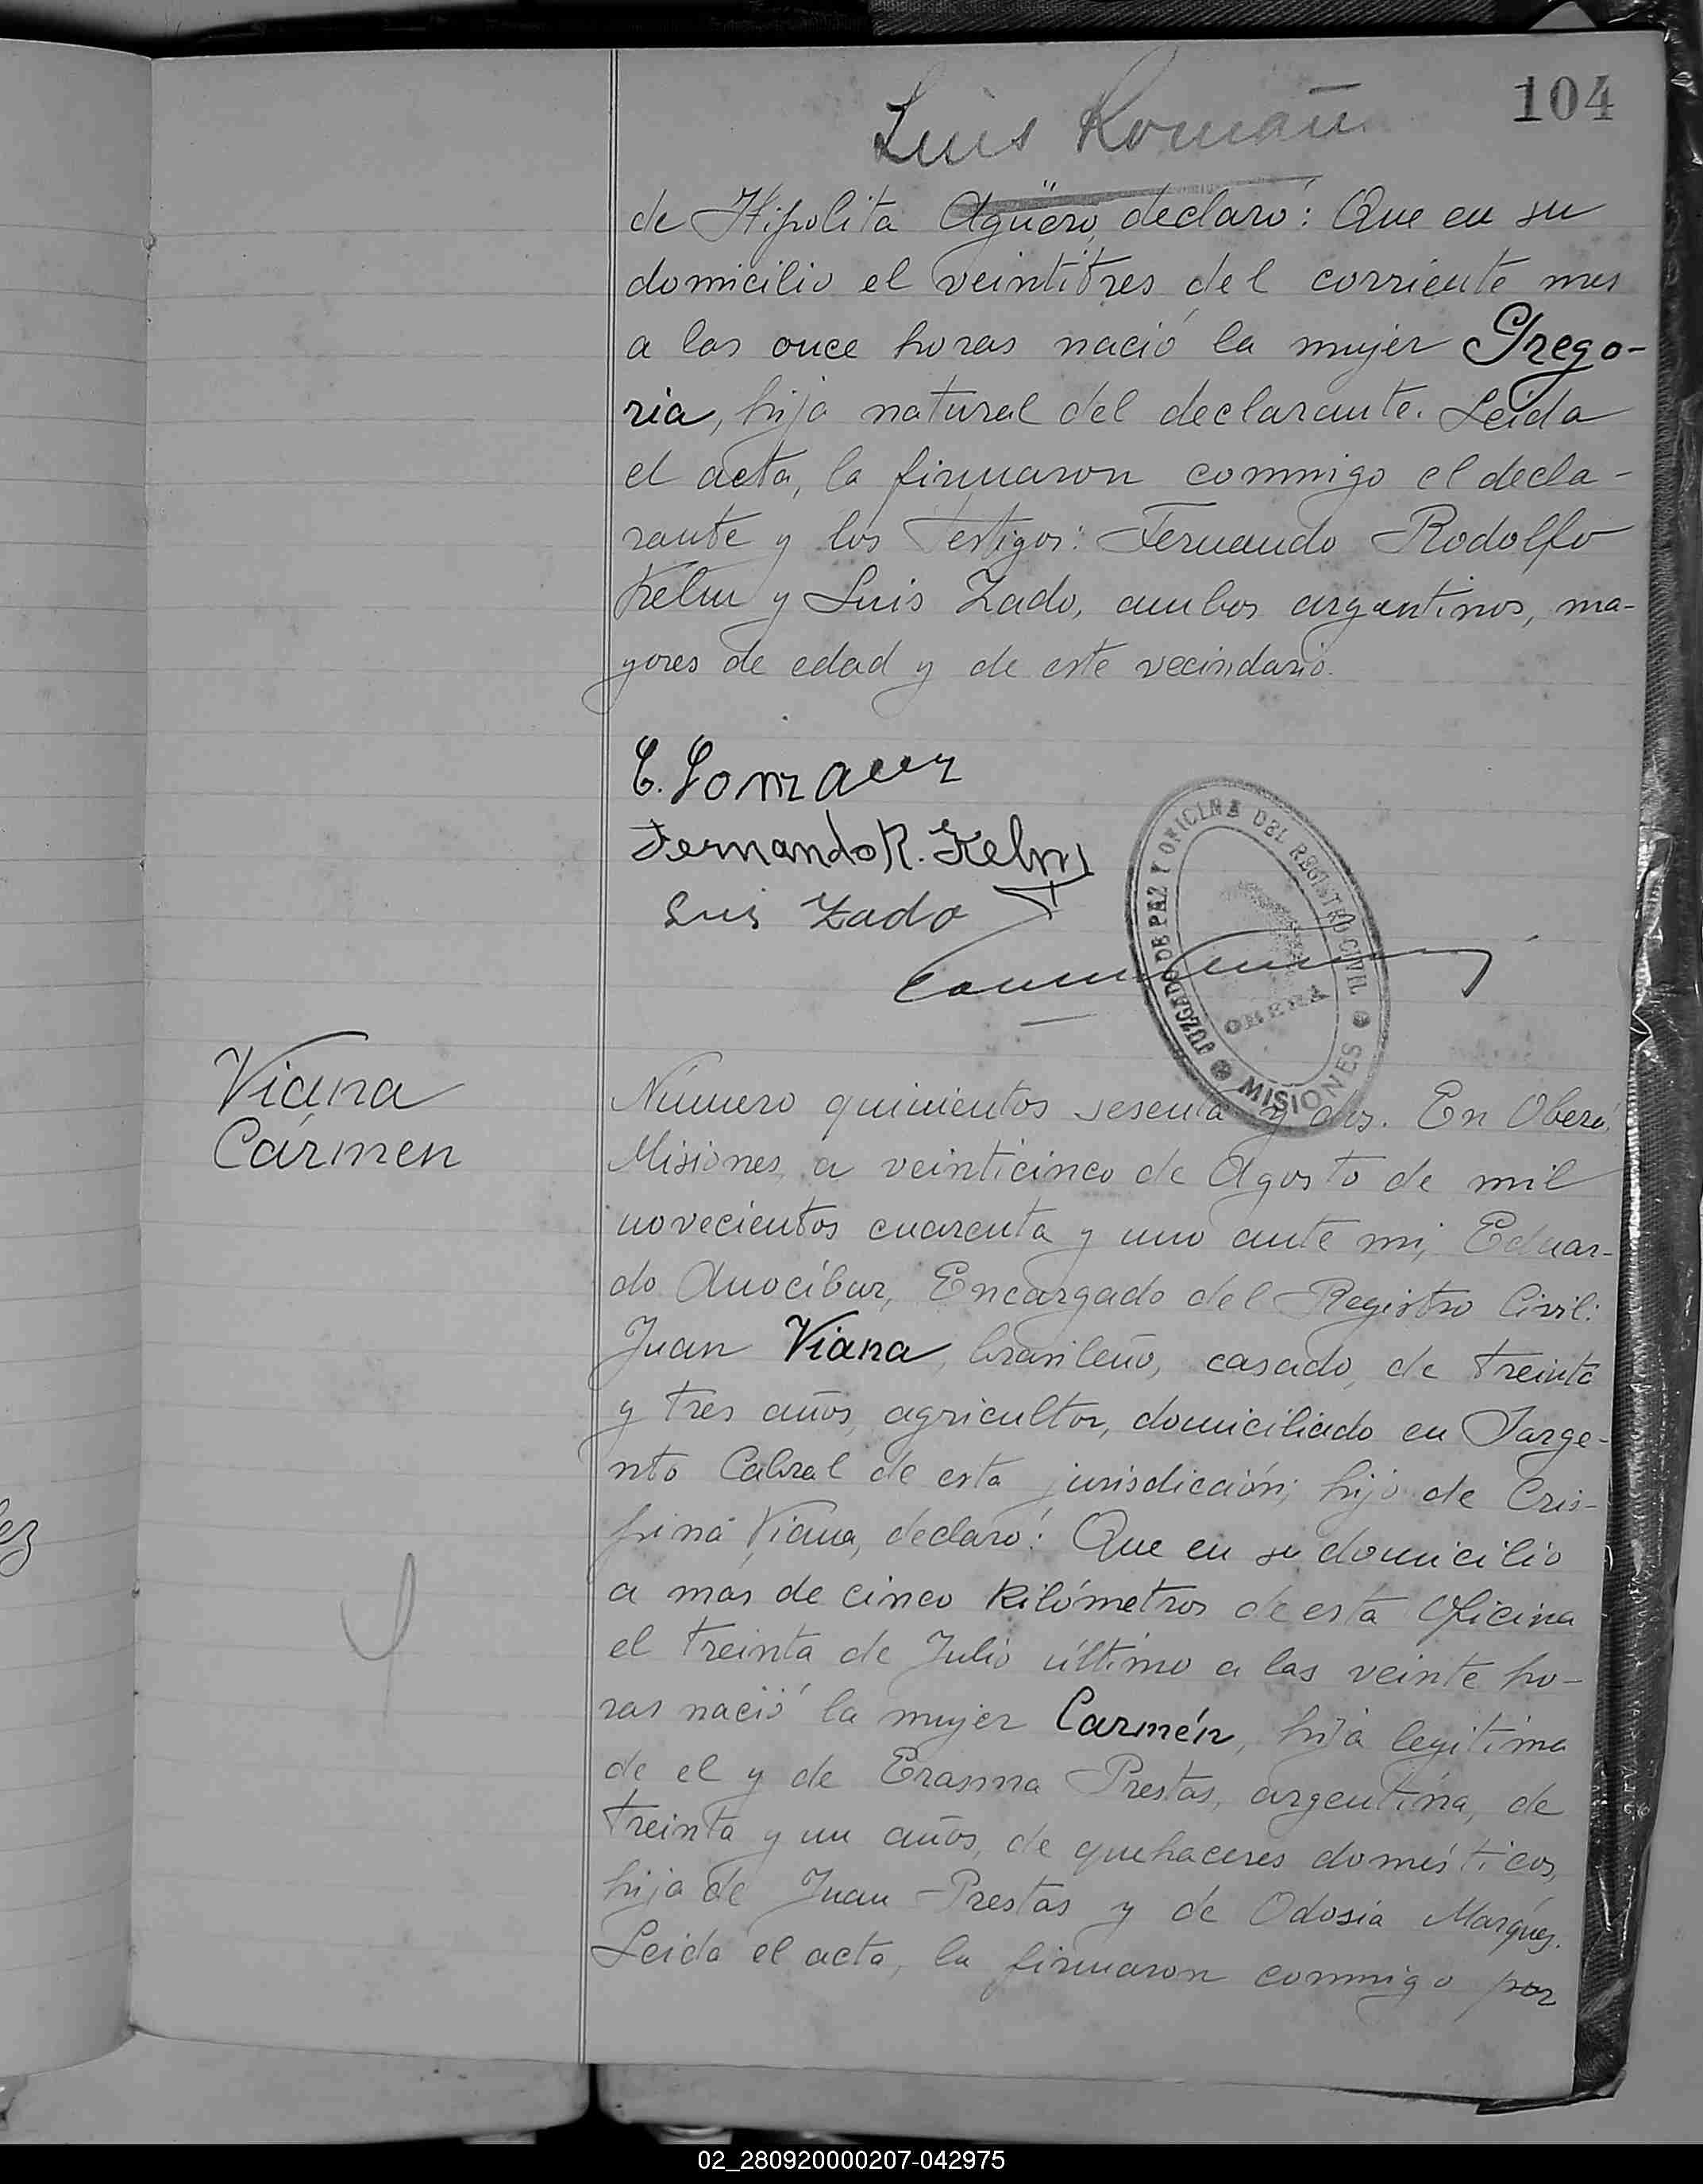 104
Luis Román
de Hipolita Agüero, declaró: Que en su
domicilio el veintitres del corriente mes
a las once horas nació la mujer Grego-
ria, hija natural del declarante. Leida
el acta, la firmaron conmigo el decla-
rante y los testigos: Fernando Rodolfo
Kelm y Luis Zado, ambos argentinos, ma-
yores de edad y de este vecindario.
Fernando R. Kelm
Luis Zado
JUZGADO DE PAZ Y OFICINA DEL REGISTRO CIVIL
OBERA
MISIONES
Viana
Cármen
Número quinientos sesenta y dos. En Oberá,
Misiones, a veinticinco de Agosto de mil
novecientos cuarenta y uno ante mi, Eduar-
do Anocíbar, Encargado del Registro Civil:
Juan Viana, brasileño, casado, de treinta
y tres años, agricultor, domiciliado en Sarge-
nto Cabral de esta jurisdicción; hijo de Cris-
pina Viana, declaró: Que en su domicilio
a mas de cinco kilómetros de esta Oficina
el treinta de Julio último a las veinte ho-
ras nació la mujer Carmén, hija legitima
de el y de Erasma Prestas, argentina, de
treinta y un años, de quehaceres domésticos,
hija de Juan Prestas y de Odosia Marques.
Leida el acta, la firmaron conmigo por
ez
02_280920000207-042975